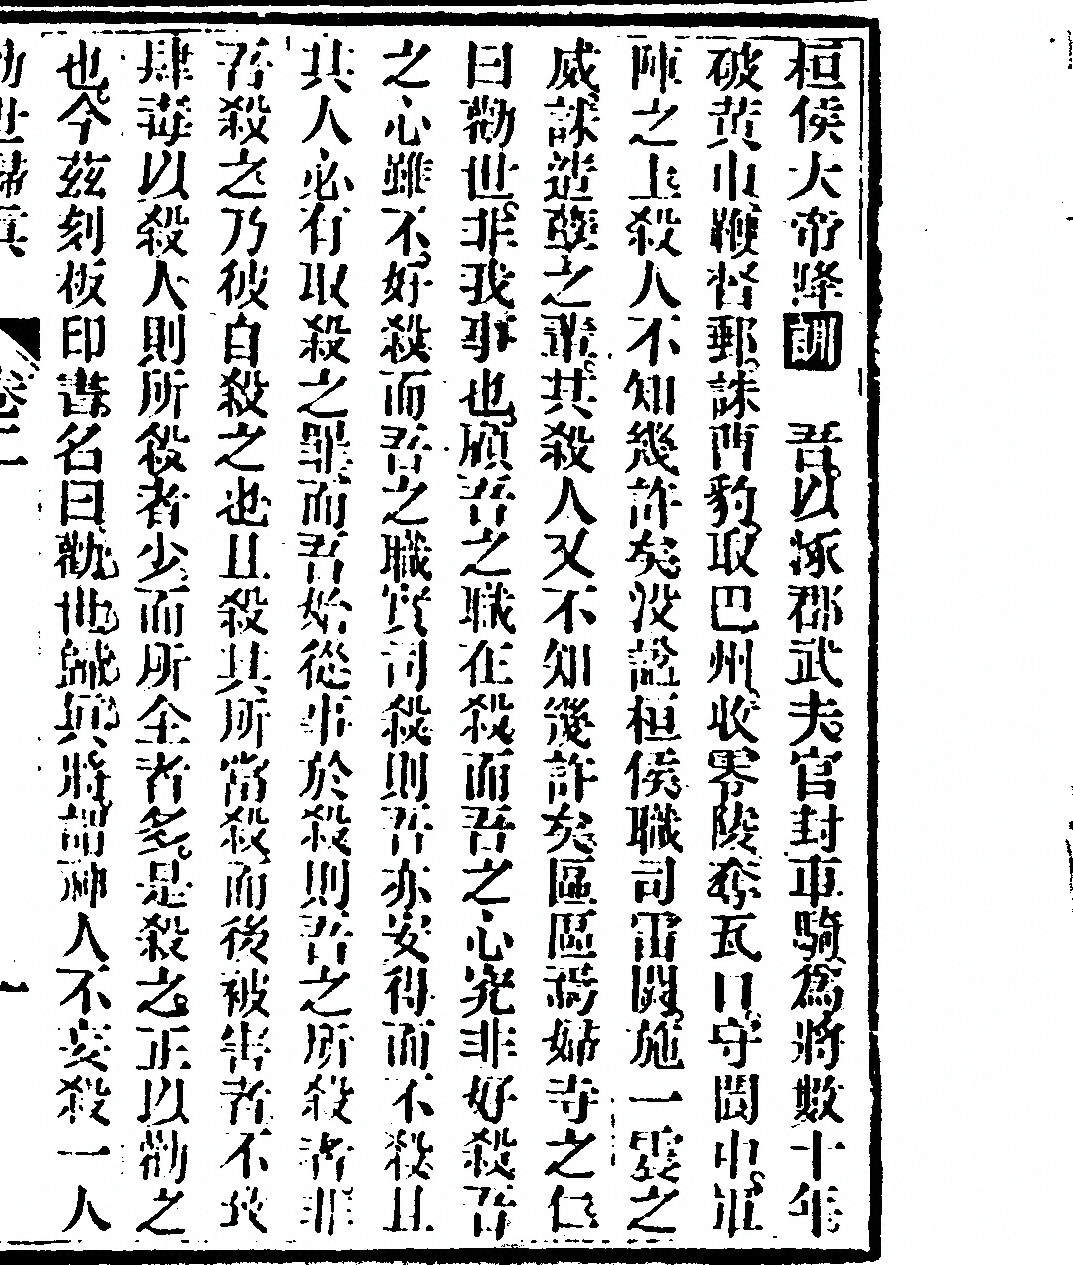 桓侯大帝降訓　吾以涿郡武夫官封車騎爲將數十年
破黃巾鞭督郵誅曹豹取巴州收零陵奪瓦口守閬中軍
陣之上殺人不知幾許矣沒證桓侯職司雷閧施一震之
威誅造孽之輩其殺人又不知幾許矣區區焉婦寺之仁
曰勸世非我事也顧吾之職在殺而吾之心究非好殺吾
之心雖不好殺而吾之職實司殺則吾亦安得而不殺且
其人必有取殺之罪而吾始從事於殺則吾之所殺者非
吾殺之乃彼自殺之也且殺其所當殺而後被害者不災
肆毒以殺人則所殺者少而所全者多是殺之正以勸之
也今茲刻板印書名曰勸世歸真將謂神人不妄殺一人
勸世歸真　卷二　一